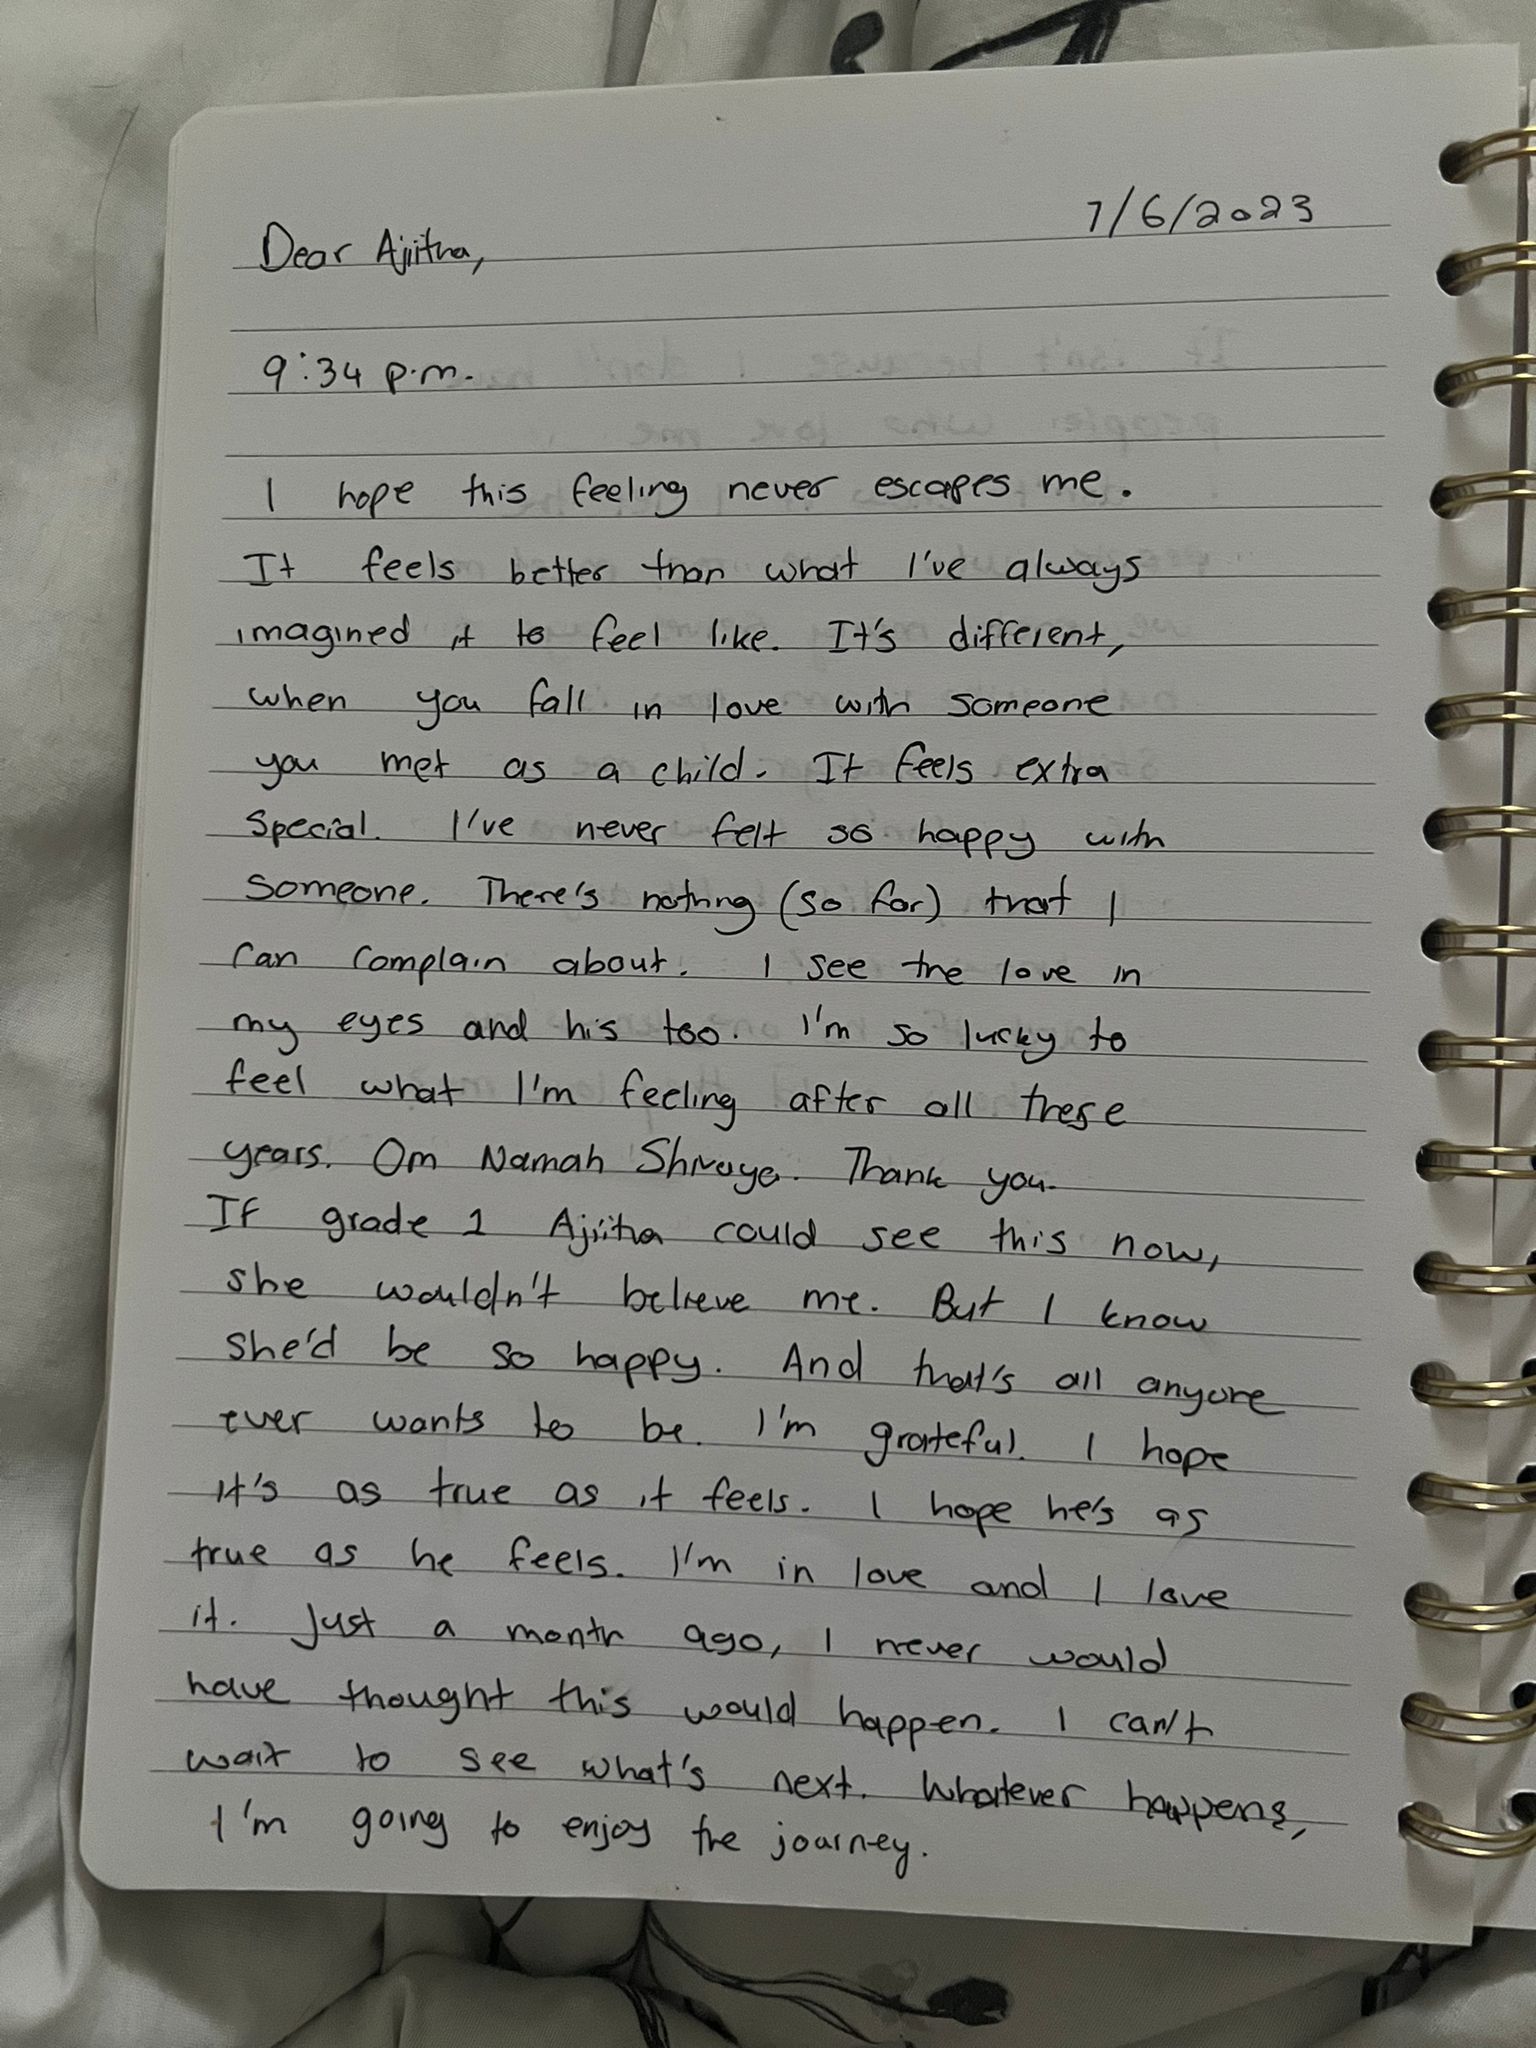 7/6/2023
Dear Ajiitha,
9:34 p.m.
I hope this feeling never escapes me.
It feels better than what I've always
imagined it to feel like. It's different,
when you fall in love with someone
you met as a child. It feels extra
special. I've never felt so happy with
someone. There's nothing (so far) that I
can complain about. I see the love in
my eyes and his too. I'm so lucky to
feel what I'm feeling after all these
years. Om Namah Shivaya. Thank you.
If grade 1 Ajiitha could see this now,
she wouldn't believe me. But I know
she'd be so happy. And that's all anyone
ever wants to be. I'm grateful. I hope
it's as true as it feels. I hope he's as
true as he feels. I'm in love and I love
it. Just a month ago, I never would
have thought this would happen. I can't
wait to see what's next. Whatever happens,
I'm going to enjoy the journey.